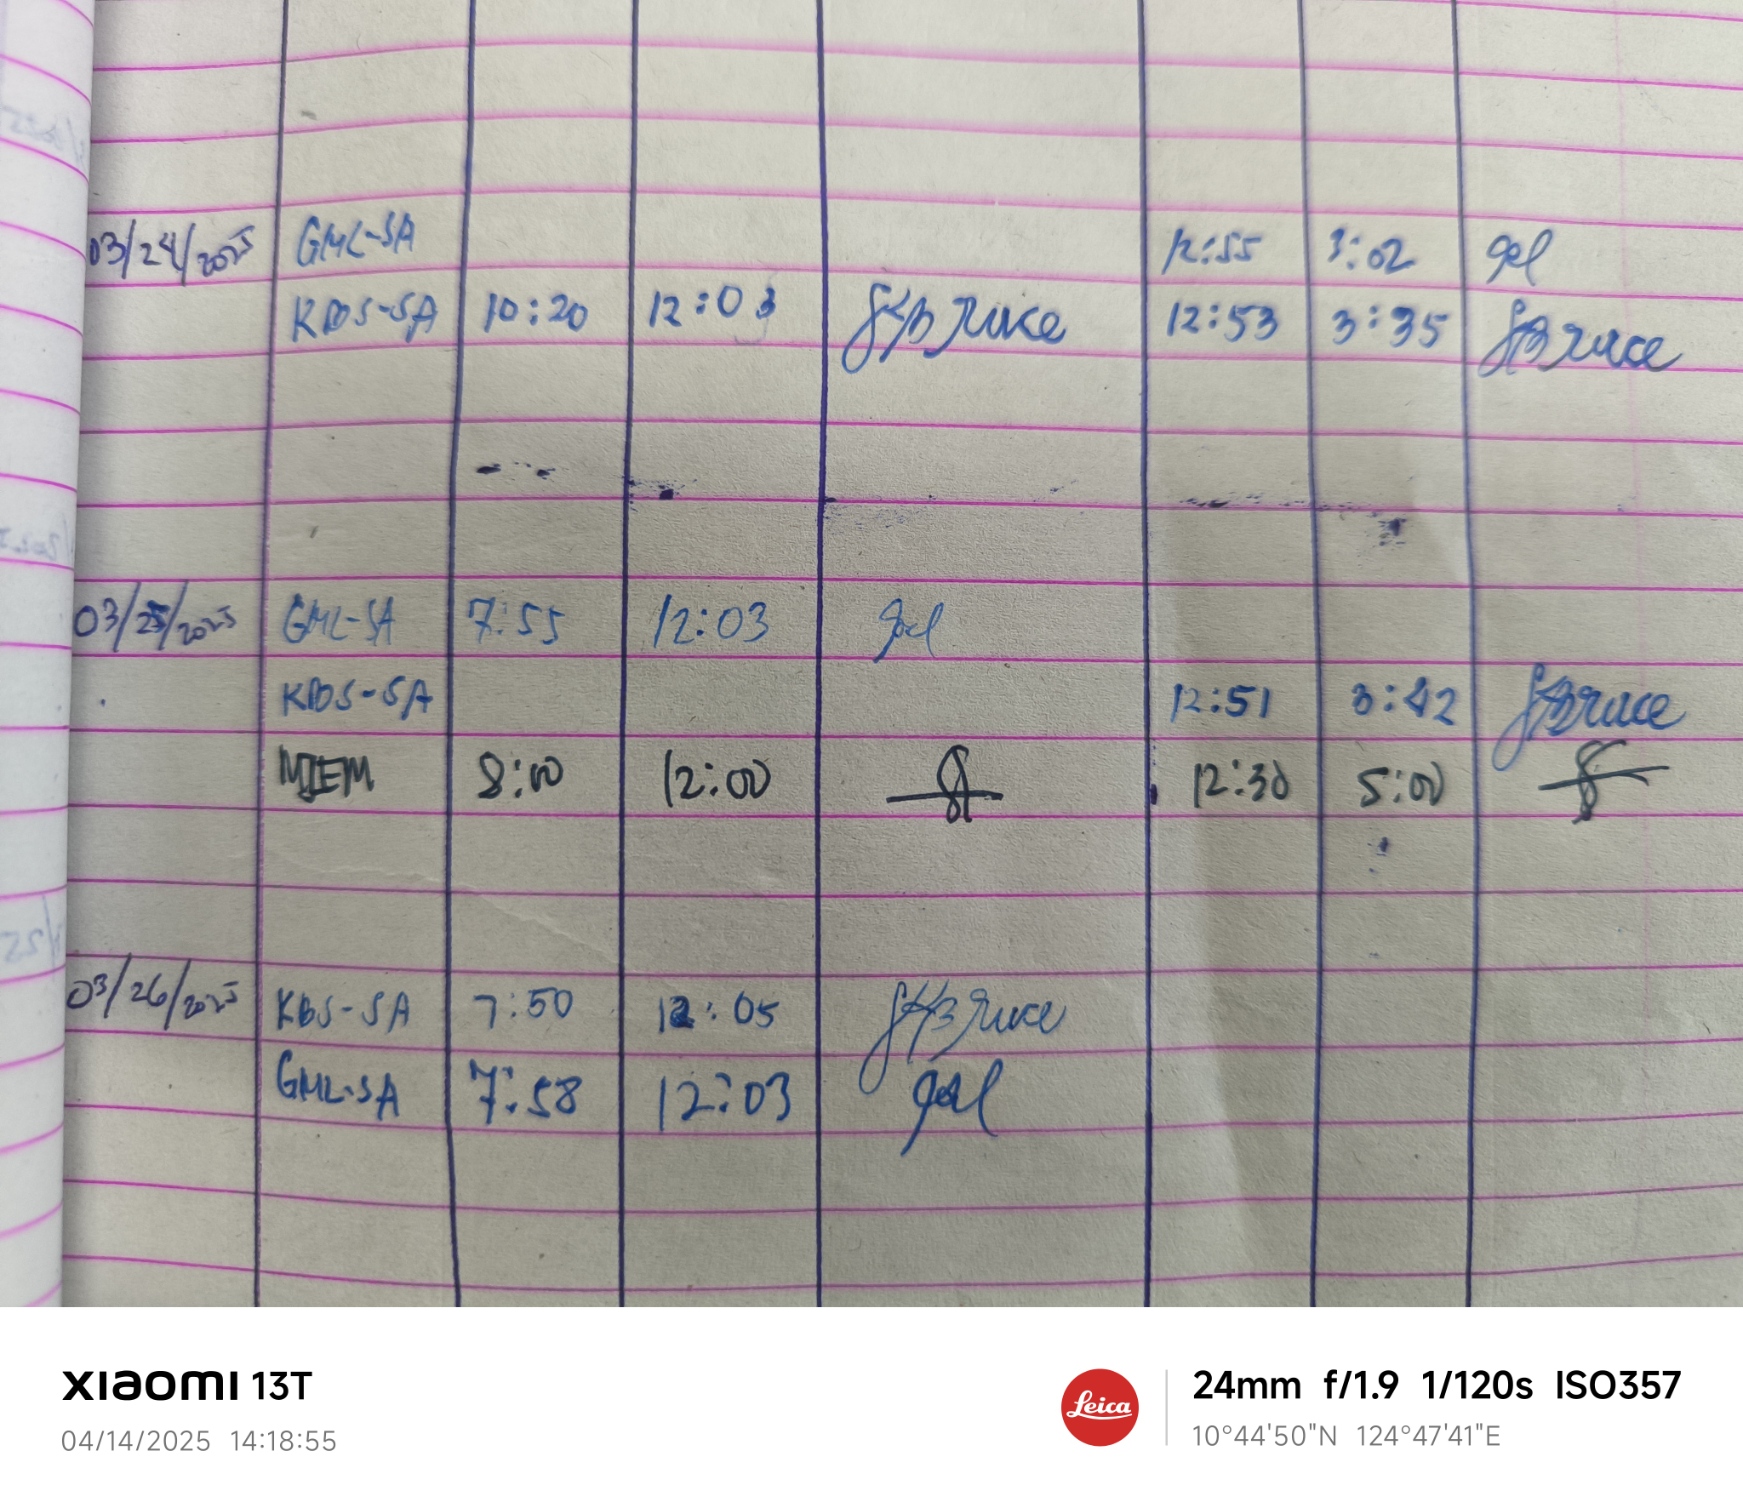 03/24/2025 GML-SA 12:55 3:02
KBS-SA 10:20 12:03 Bruce 12:53 3:35 Bruce
03/25/2025 GML-SA 7:55 12:03
KBS-SA 12:51 3:42 Bruce
MJEM 8:00 12:00 12:30 5:00
03/26/2025 KBS-SA 7:50 12:05 Bruce
GML-SA 7:58 12:03
XIAOMI 13T
04/14/2025 14:18:55
Leica
24mm f/1.9 1/120s ISO357
10°44'50"N 124°47'41"E